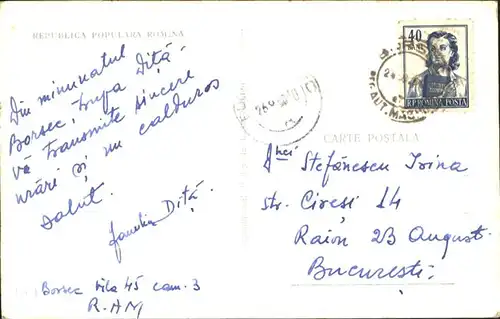 REPUBLICA POPULARA ROMINA
Din minunatul
Borsec, trupa Diță
vă transmite sincere
urări și un călduros
salut.
Familia Diță.
Borsec Vila 45 cam. 3
R. AM
40
R.P. ROMINA POSTA
CARTE POSTALA
Ștefănescu Irina
str. Cireși 14
Raion 23 August
București.